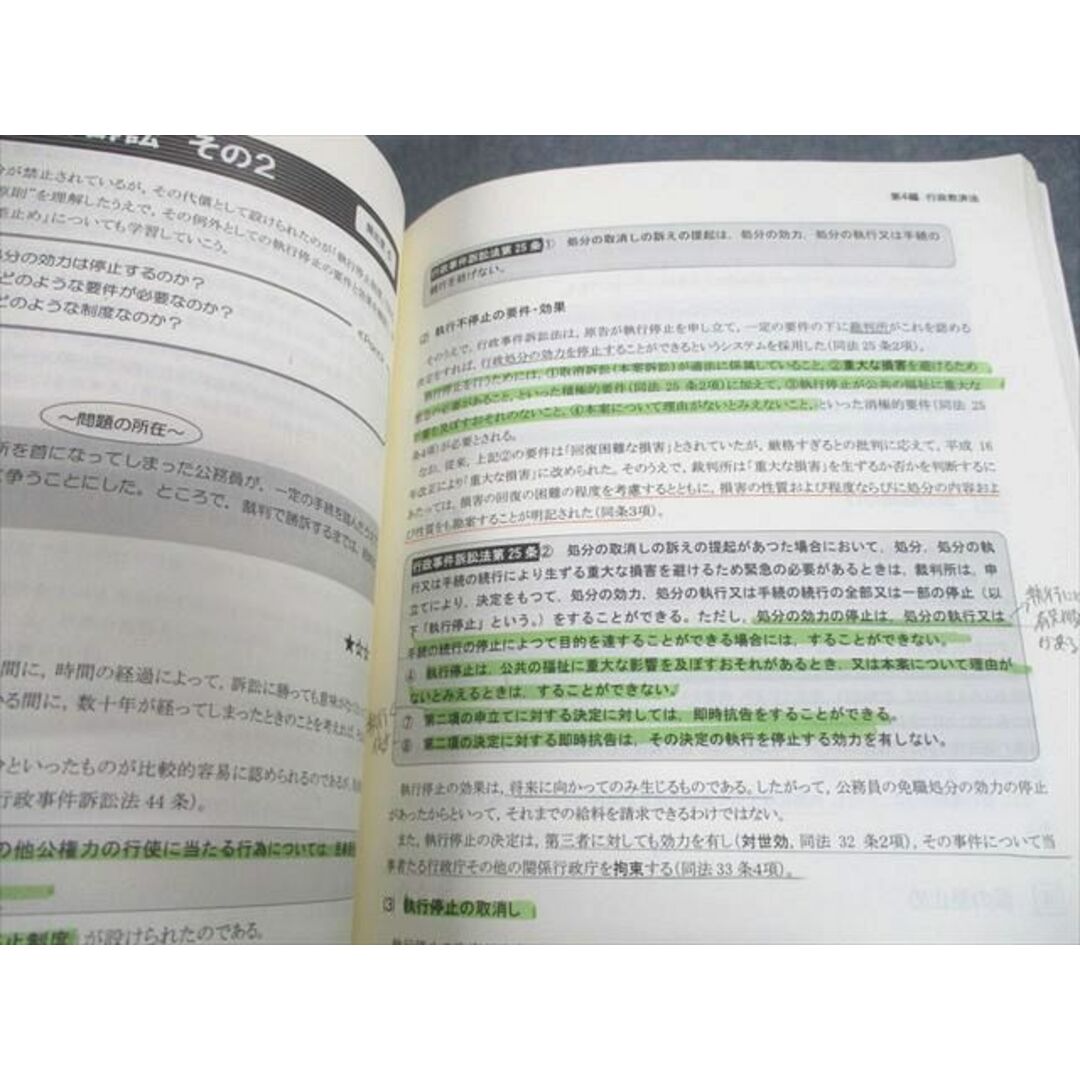 訴訟 その2
分が禁止されているが，その代償として設けられたのが「執行停止
原則”を理解したうえで，その例外としての執行停止の要件と効果
差止め」についても学習していこう。
処分の効力は停止するのか？
どのような要件が必要なのか？
どのような制度なのか？
～問題の所在～
所を首になってしまった公務員が，一定の手続を踏んだうえ
で争うことにした。ところで，裁判で勝訴するまでは，
★☆☆
間に，時間の経過によって，訴訟に勝っても意味がな
る間に，数十年が経ってしまったときのことを考えれば，
分といったものが比較的容易に認められるのであるが，
行政事件訴訟法 44 条）。
の他公権力の行使に当たる行為については，民事
止制度」が設けられたのである。
第4編 行政救済法
行政事件訴訟法第 25 条 ① 処分の取消しの訴えの提起は，処分の効力，処分の執行又は手続の
続行を妨げない。
② 執行不停止の要件・効果
そのうえで，行政事件訴訟法は，原告が執行停止を申し立て，一定の要件の下に裁判所がこれを認める
決定をすれば，行政処分の効力を停止することができるというシステムを採用した（同法 25 条2項）。
執行停止を行うためには，①取消訴訟（本案訴訟）が適法に係属していること，②重大な損害を避けるため
緊急の必要があること，といった積極的要件（同法 25 条2項）に加えて，③執行停止が公共の福祉に重大な
影響を及ぼすおそれのないこと，④本案について理由がないとみえないこと，といった消極的要件（同法 25
条4項）が必要とされる。
なお，従来，上記②の要件は「回復困難な損害」とされていたが，厳格すぎるとの批判に応えて，平成 16
年改正により「重大な損害」に改められた。そのうえで，裁判所は「重大な損害」を生ずるか否かを判断するに
あたっては，損害の回復の困難の程度を考慮するとともに，損害の性質および程度ならびに処分の内容およ
び性質をも勘案することが明記された（同条3項）。
行政事件訴訟法第 25 条 ② 処分の取消しの訴えの提起があつた場合において，処分，処分の執
行又は手続の続行により生ずる重大な損害を避けるため緊急の必要があるときは，裁判所は，申
立てにより，決定をもつて，処分の効力，処分の執行又は手続の続行の全部又は一部の停止（以
下「執行停止」という。）をすることができる。ただし，処分の効力の停止は，処分の執行又は
手続の続行の停止によつて目的を達することができる場合には，することができない。
④ 執行停止は，公共の福祉に重大な影響を及ぼすおそれがあるとき，又は本案について理由が
ないとみえるときは，することができない。
⑦ 第二項の申立てに対する決定に対しては，即時抗告をすることができる。
⑧ 第二項の決定に対する即時抗告は，その決定の執行を停止する効力を有しない。
執行停止の効果は，将来に向かってのみ生じるものである。したがって，公務員の免職処分の効力の停止
があったからといって，それまでの給料を請求できるわけではない。
また，執行停止の決定は，第三者に対しても効力を有し（対世効，同法 32 条2項），その事件について当
事者たる行政庁その他の関係行政庁を拘束する（同法 33 条4項）。
③ 執行停止の取消し